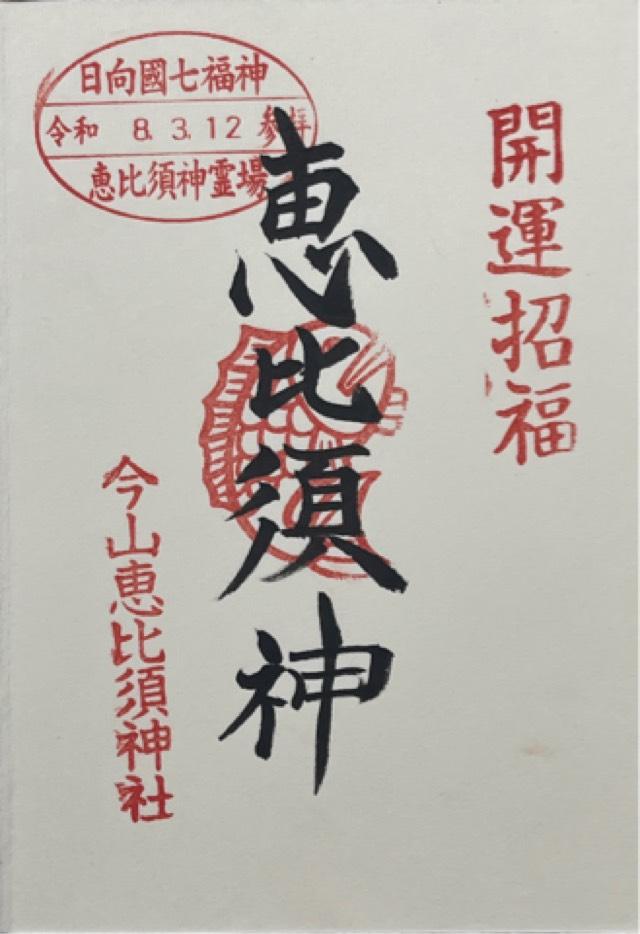 開運招福
恵比須神
日向國七福神
令和 8.3.12 参拝
恵比須神霊場
今山恵比須神社